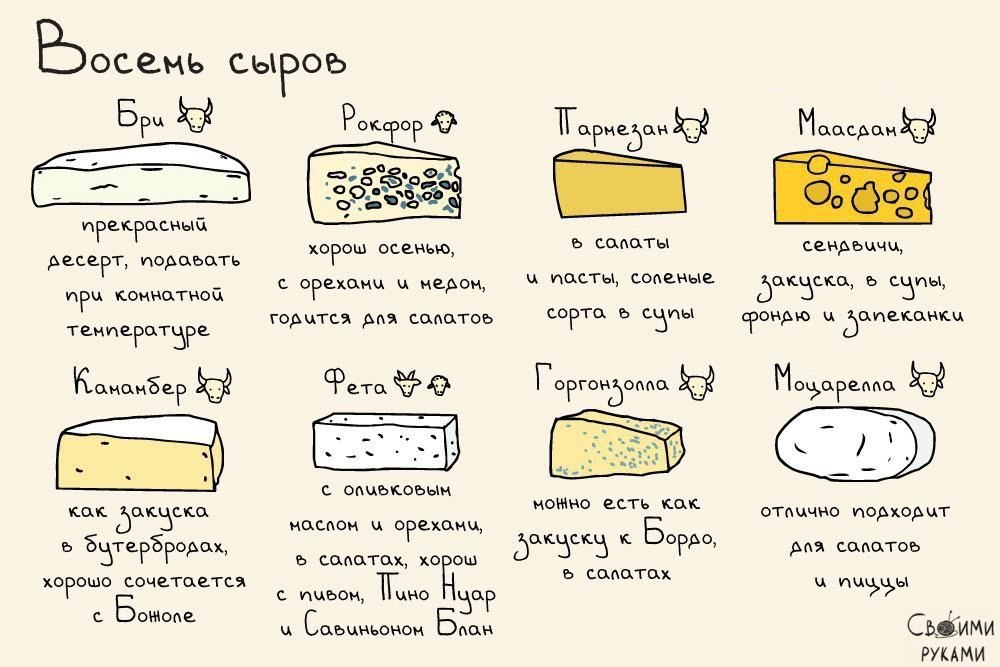 Восемь сыров
Бри
прекрасный
десерт, подавать
при комнатной
температуре
Рокфор
хорош осенью,
с орехами и медом,
годится для салатов
Пармезан
в салаты
и пасты, соленые
сорта в супы
Маасдам
сендвичи,
закуска, в супы,
фондю и запеканки
Камамбер
как закуска
в бутербродах,
хорошо сочетается
с Божоле
Фета
с оливковым
маслом и орехами,
в салатах, хорош
с пивом, Пино Нуар
и Савиньоном Блан
Горгонзолла
можно есть как
закуску к Бордо,
в салатах
Моцарелла
отлично подходит
для салатов
и пиццы
СВОИМИ
РУКАМИ